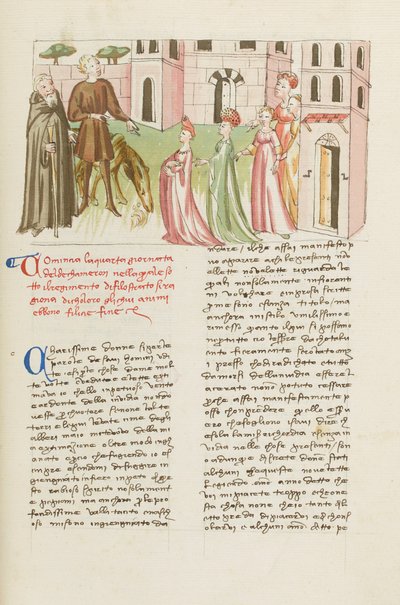 Cominca la quarta giornata
del dechameron nella quale so
tto il regimento di filostrato si ra
giona di choloro gli chui amori
ebbono filice fine
Charissime donne si per le
parole de savi uomini udi
te e si per le chose da me mol
te volte e vedute e lette esti
mavo io che llo inpetuoso vento
e ardente della invidia non do
vesse perchuotere se non le alte
torri e le piu levate cime degli
alberi ma io mi truovo della mia
extimazione oltre modo ingh
annato e ggi che fuggiendo io e s
empre essendomi di fuggire in
giengniato il fiero inpeto di que
sto rabioso spirito non solamente
pe piani ma anchora per le pro
fondissime valli tanto e nasch
oso mi sono ingiengniato da
ndare / il che assai manifesto p
uo aparare a chi le presenti nov
ellette riguarda le
quali non solamente in fiorenti
no volghare e in prosa scritte
per me sono e sanza titolo / ma
anchora in istilo umilissimo e
rimesso quanto il piu si possono
ne per tutto cio l essere da chotal v
ento fieramente scrollato anzi
presso che diradicato e tutto
da morsi della invidia essere l
acerato non o potuto cessare
perche assai manifestamente p
osso chonprendere quello esser v
ero che sogliono i savi dire ch
e sola la miseria e sanza i
nvidia nelle chose presenti / son
o adunque discrete donne stati
alchuni che queste novellette
leggiendo anno detto che
voi mi piacete troppo e che one
sta chosa non e che io tanto dil
etto prenda di piacervi e di chons
olarvi e alchuni anno detto pe